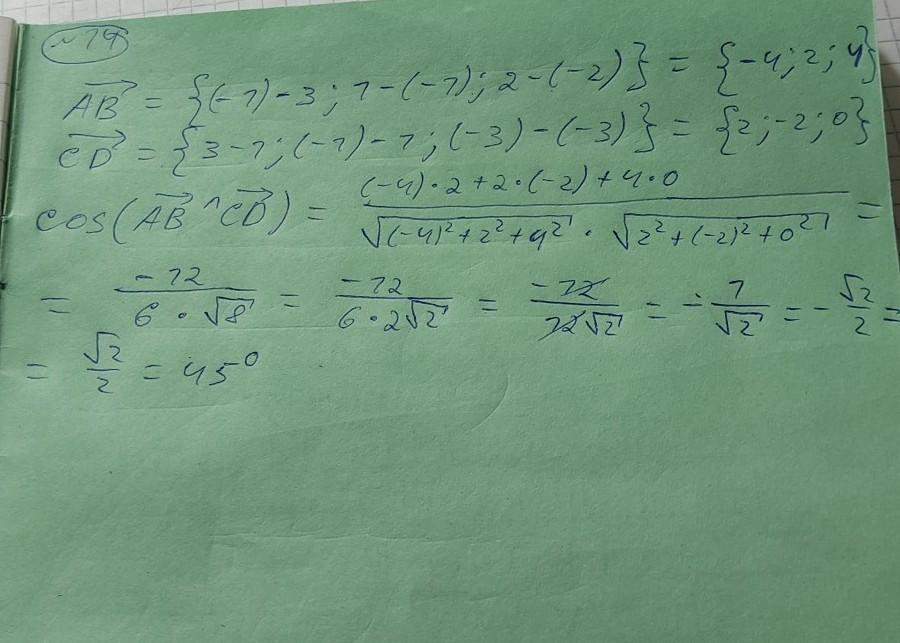 №14
AB = {(-1)-3; 1-(-1); 2-(-2)} = {-4; 2; 4}
CD = {3-1; (-1)-1; (-3)-(-3)} = {2; -2; 0}
cos(AB ^ CD) = (-4)·2+2·(-2)+4·0 / √(-4)²+2²+4² · √2²+(-2)²+0² =
= -12 / 6·√8 = -12 / 6·2√2 = -12 / 12√2 = - 1/√2 = - √2/2 =
= √2/2 = 45°